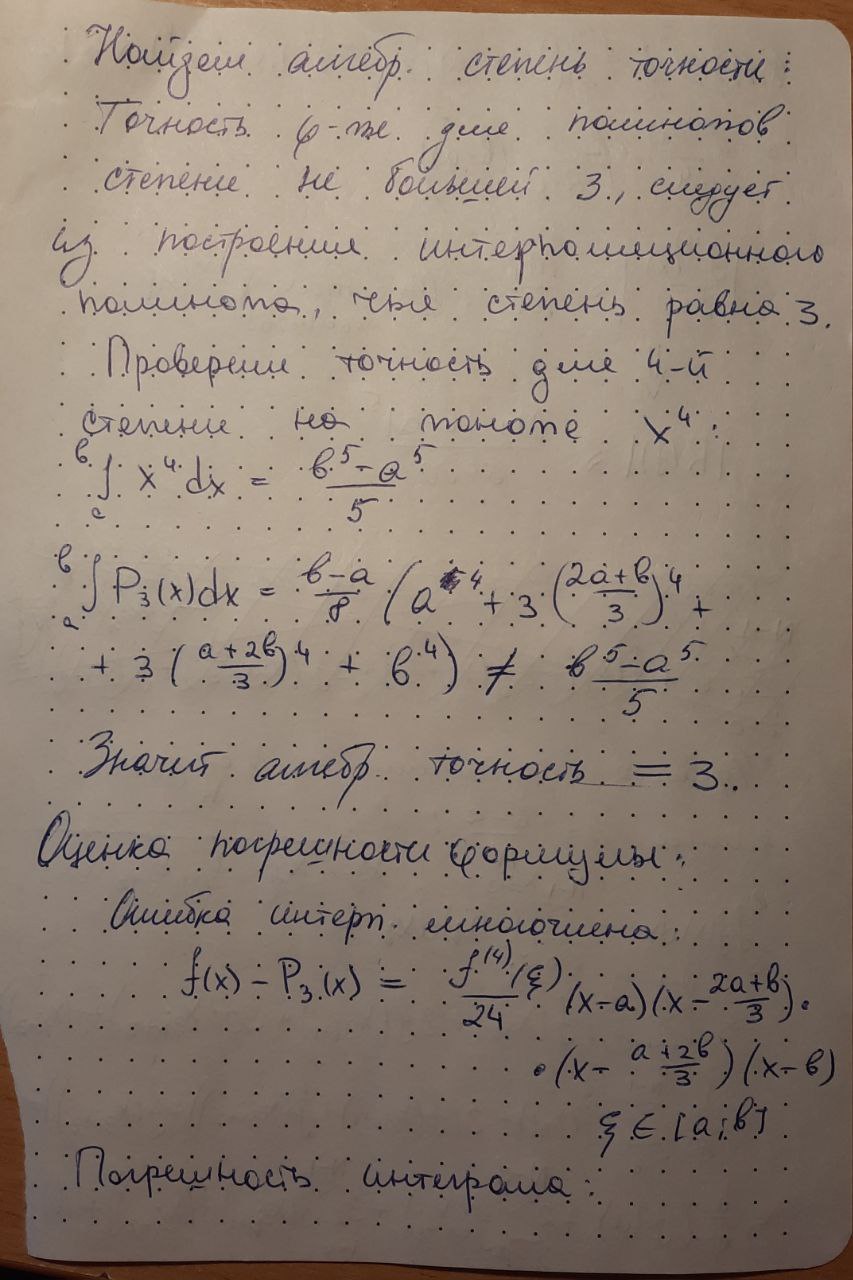 Найдем алгебр. степень точности:
Точность ф-лы для полиномов
степени не большей 3, следует
из построения интерполяционного
полинома, чья степень равна 3.
Проверим точность для 4-й
степени на мономе x⁴:
∫ₐᵇ x⁴dx = (b⁵-a⁵)/5
∫ₐᵇ P₃(x)dx = (b-a)/8 (a⁴ + 3((2a+b)/3)⁴ +
+ 3((a+2b)/3)⁴ + b⁴) ≠ (b⁵-a⁵)/5
Значит алгебр. точность = 3.
Оценка погрешности формулы:
Ошибка интерп. многочлена:
f(x) - P₃(x) = f⁽⁴⁾(ξ)/24 (x-a)(x-(2a+b)/3)·
·(x-(a+2b)/3)(x-b)
ξ ∈ [a; b]
Погрешность интеграла: